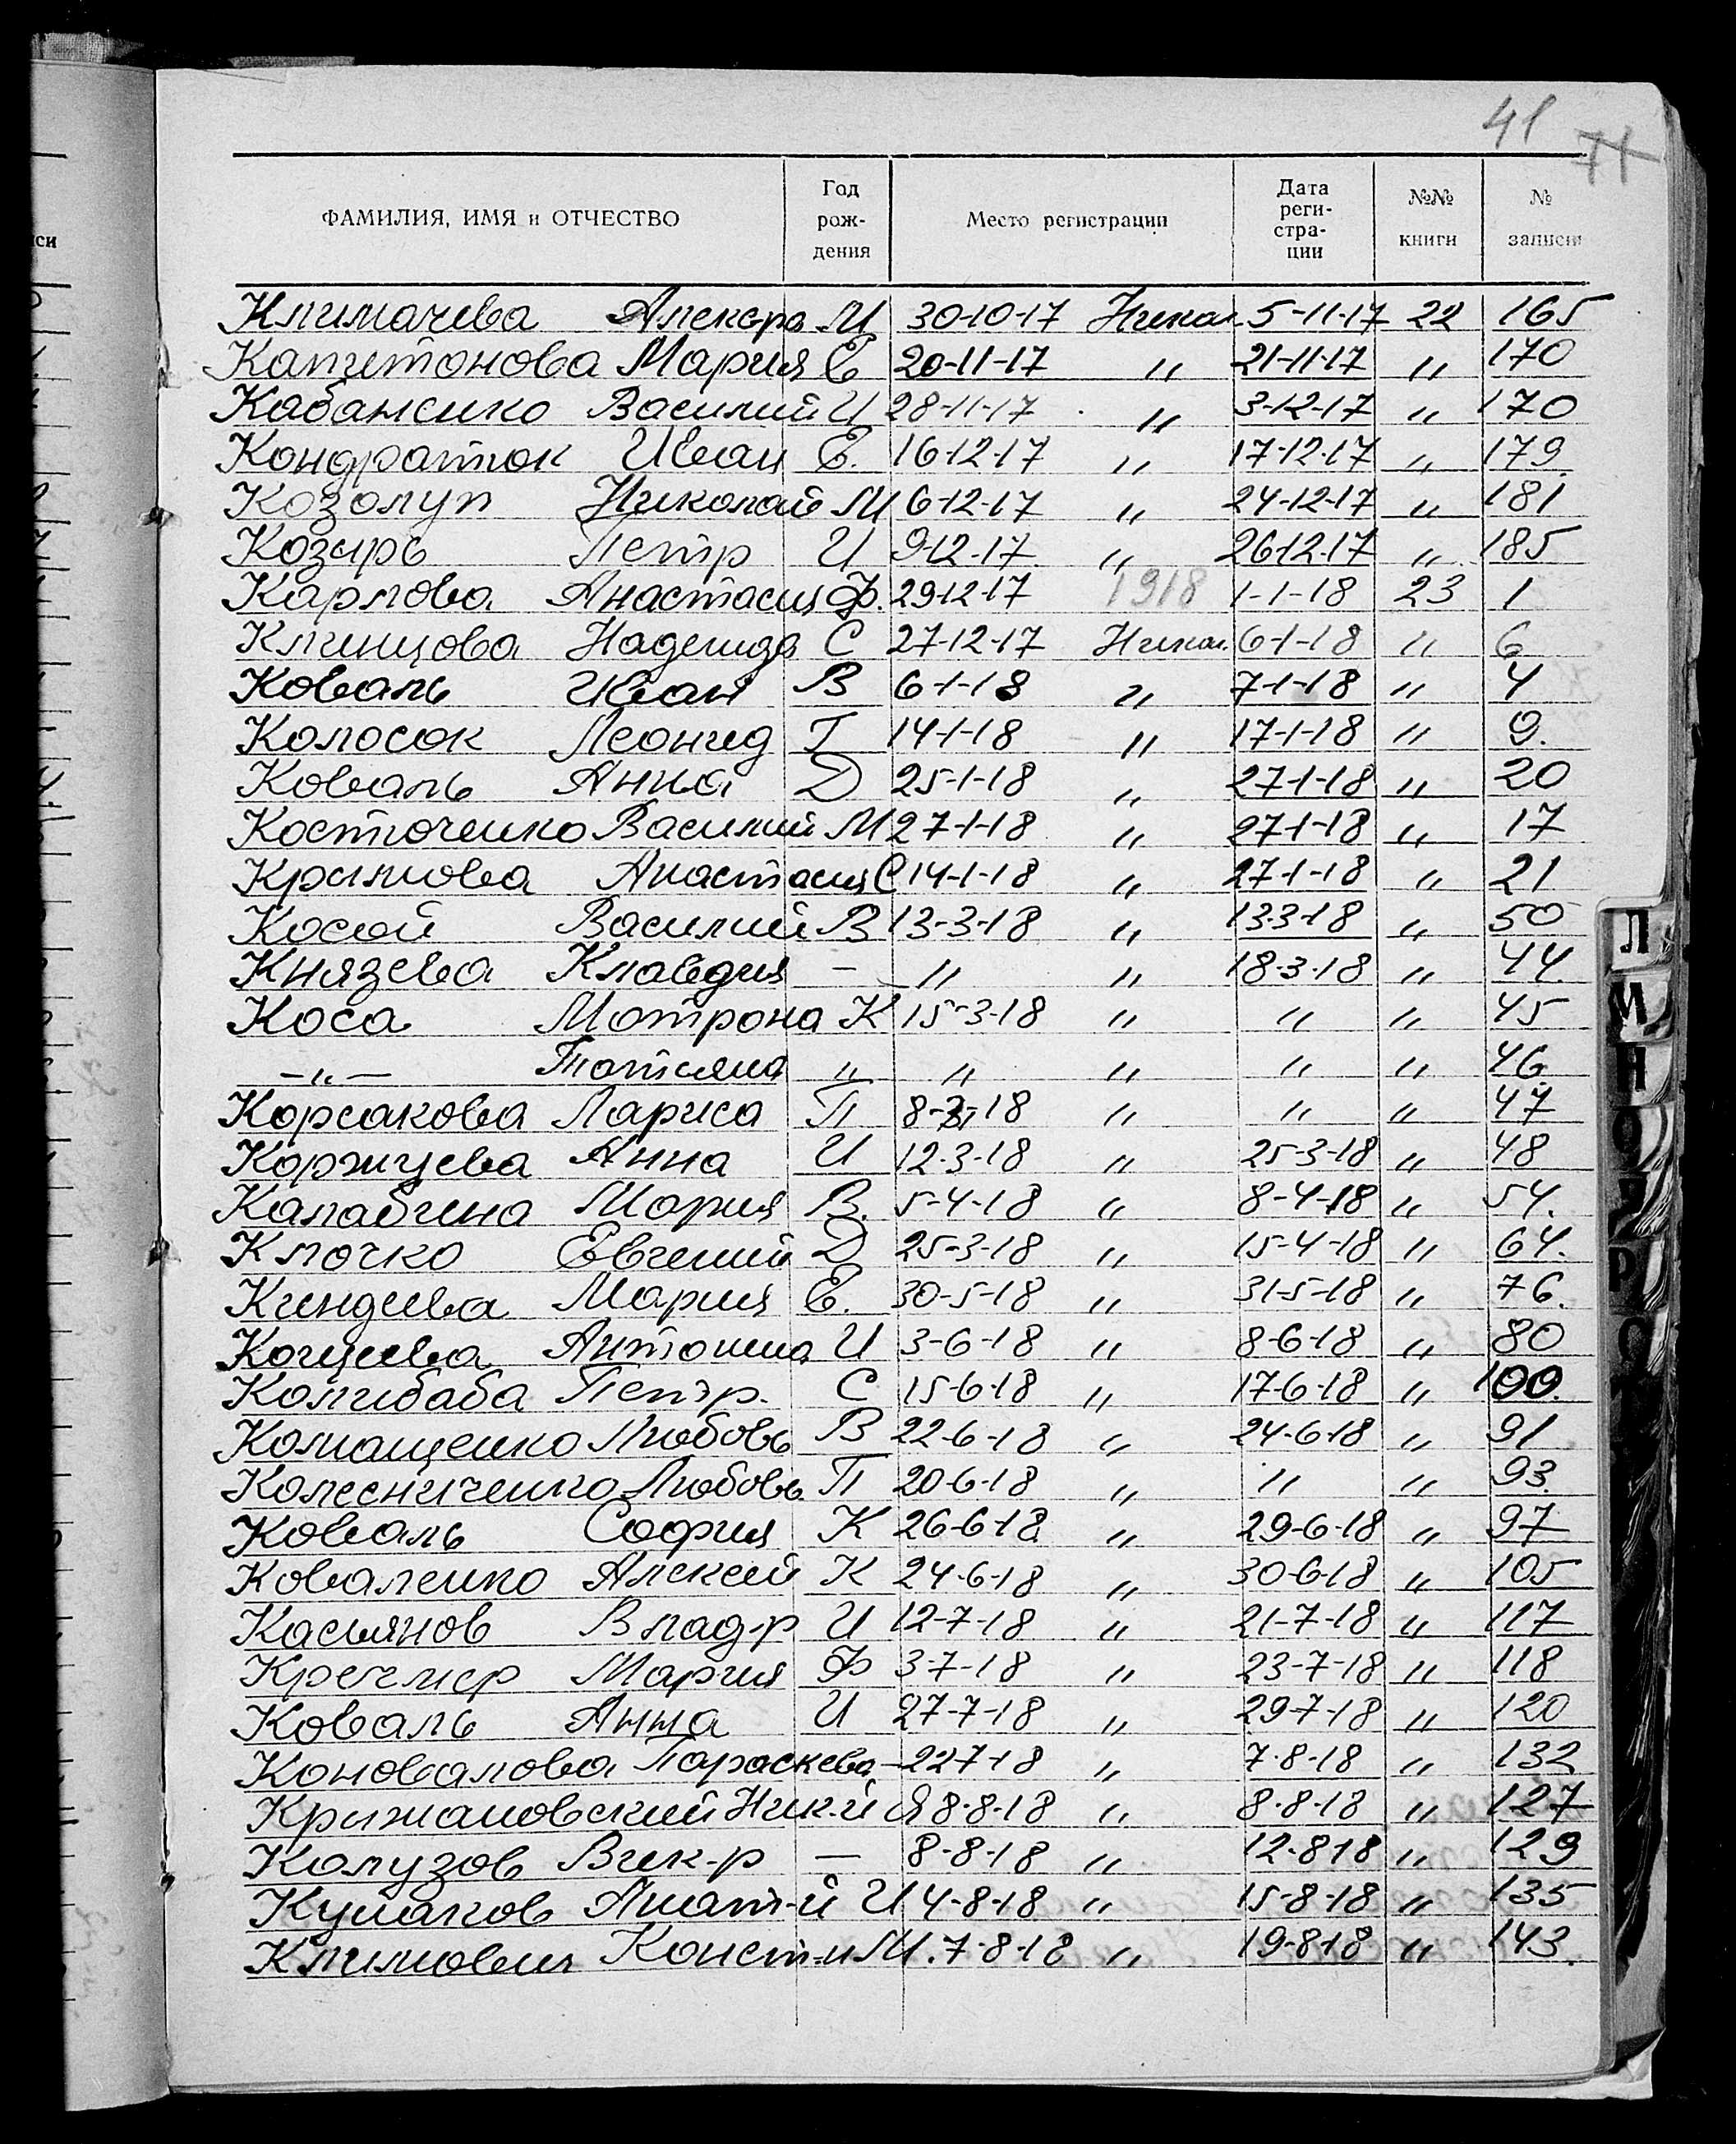 41 71
ФАМИЛИЯ, ИМЯ и ОТЧЕСТВО Год рождения Место регистрации Дата регистрации №№ книги № записи
Климачева Алексра М 30-10-17 Никол. 5-11-17 22 165
Капитонова Мария Е 20-11-17 " 21-11-17 " 170
Кабансико Василий И 28-11-17 " 3-12-17 " 170
Кондраток Иван Е. 16-12-17 " 17-12-17 " 179
Козолуп Николай М 6-12-17 " 24-12-17 " 181
Козирь Петр И 9-12-17 " 26-12-17 " 185
Карпова Анастасия Ф. 29-12-17 1918 1-1-18 23 1
Клинцова Надежда С 27-12-17 Никол. 6-1-18 " 6
Коваль Иван В 6-1-18 " 7-1-18 " 4
Колосок Леонид Г 14-1-18 " 17-1-18 " 9.
Коваль Анна Д 25-1-18 " 27-1-18 " 20
Косточенко Василий М 27-1-18 " 27-1-18 " 17
Крымова Анастасия С 14-1-18 " 27-1-18 " 21
Косой Василий В 13-3-18 " 13-3-18 " 50
Князева Клавдия — " " 18-3-18 " 44
Коса Мотрона К 15-3-18 " " " 45
—"— Татьяна " " " " " 46
Корсакова Лариса П 8-3-18 " " " 47
Коржуева Анна И 12-3-18 " 25-3-18 " 48
Калабина Мария В. 5-4-18 " 8-4-18 " 54.
Клочко Евгений Д 25-3-18 " 15-4-18 " 64.
Киндеева Мария Е. 30-5-18 " 31-5-18 " 76.
Коцуева Антонина И 3-6-18 " 8-6-18 " 80
Колибаба Петр. С 15-6-18 " 17-6-18 " 100.
Комащенко Любовь В 22-6-18 " 24-6-18 " 91
Колесниченко Любовь П 20-6-18 " " " 93.
Коваль София К 26-6-18 " 29-6-18 " 97
Коваленко Алексей К 24-6-18 " 30-6-18 " 105
Касьянов Влад-р И 12-7-18 " 21-7-18 " 117
Кречмер Мария Ф 3-7-18 " 23-7-18 " 118
Коваль Анна И 27-7-18 " 29-7-18 " 120
Коновалова Параскева — 22-7-18 " 7-8-18 " 132
Крыжановский Ник-й Я 8-8-18 " 8-8-18 " 127
Колузов Вик-р — 8-8-18 " 12-8-18 " 129
Кулаков Анат-й И 4-8-18 " 15-8-18 " 135
Климович Конст-н М. 7-8-18 " 19-8-18 " 143.
Л
М
Н
О
Р